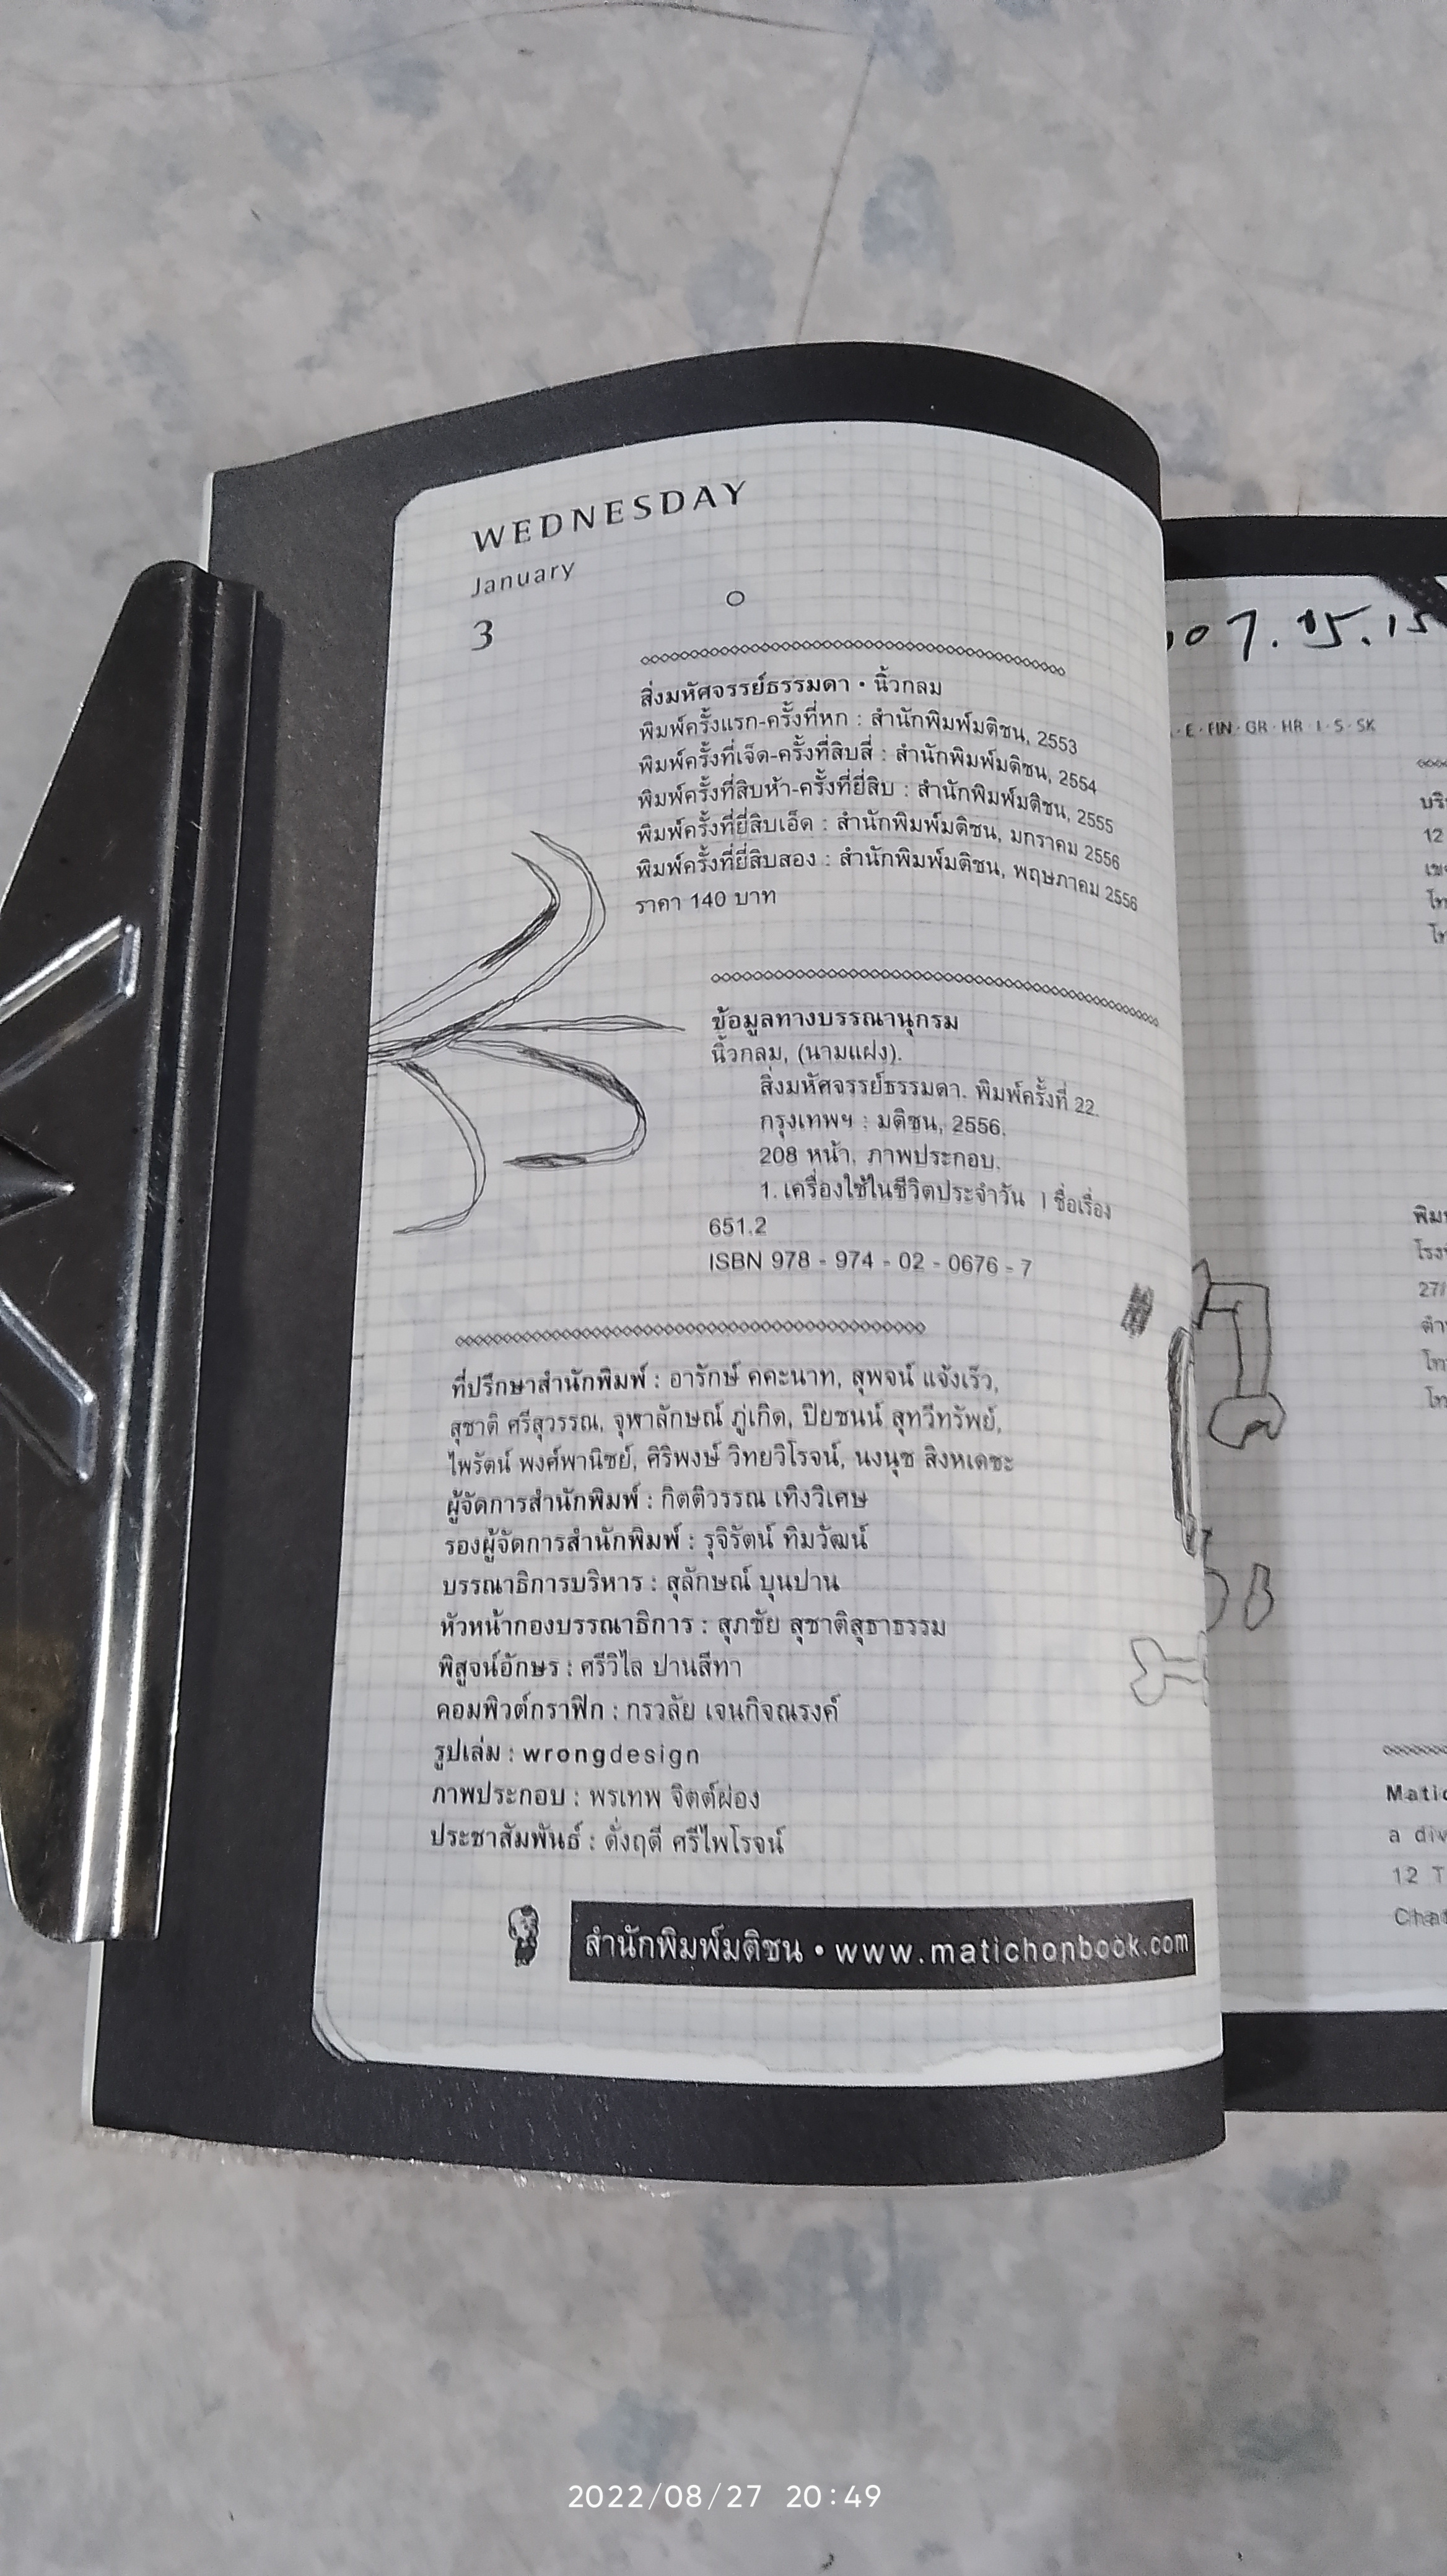 WEDNESDAY
January
3
สิ่งมหัศจรรย์ธรรมดา • นิ้วกลม
พิมพ์ครั้งแรก-ครั้งที่หก : สำนักพิมพ์มติชน, 2553
พิมพ์ครั้งที่เจ็ด-ครั้งที่สิบสี่ : สำนักพิมพ์มติชน, 2554
พิมพ์ครั้งที่สิบห้า-ครั้งที่ยี่สิบ : สำนักพิมพ์มติชน, 2555
พิมพ์ครั้งที่ยี่สิบเอ็ด : สำนักพิมพ์มติชน, มกราคม 2556
พิมพ์ครั้งที่ยี่สิบสอง : สำนักพิมพ์มติชน, พฤษภาคม 2556
ราคา 140 บาท
ข้อมูลทางบรรณานุกรม
นิ้วกลม, (นามแฝง).
สิ่งมหัศจรรย์ธรรมดา. พิมพ์ครั้งที่ 22.
กรุงเทพฯ : มติชน, 2556.
208 หน้า. ภาพประกอบ.
1. เครื่องใช้ในชีวิตประจำวัน I ชื่อเรื่อง
651.2
ISBN 978 - 974 - 02 - 0676 - 7
ที่ปรึกษาสำนักพิมพ์ : อารักษ์ คคะนาท, สุพจน์ แจ้งเร็ว,
สุชาติ ศรีสุวรรณ, จุฬาลักษณ์ ภู่เกิด, ปิยชนน์ สุทวีทรัพย์,
ไพรัตน์ พงศ์พานิชย์, ศิริพงษ์ วิทยวิโรจน์, นงนุช สิงหเดชะ
ผู้จัดการสำนักพิมพ์ : กิตติวรรณ เทิงวิเศษ
รองผู้จัดการสำนักพิมพ์ : รุจิรัตน์ ทิมวัฒน์
บรรณาธิการบริหาร : สุลักษณ์ บุนปาน
หัวหน้ากองบรรณาธิการ : สุภชัย สุชาติสุธาธรรม
พิสูจน์อักษร : ศรีวิไล ปานสีทา
คอมพิวต์กราฟิก : กรวลัย เจนกิจณรงค์
รูปเล่ม : wrongdesign
ภาพประกอบ : พรเทพ จิตต์ผ่อง
ประชาสัมพันธ์ : ดั่งฤดี ศรีไพโรจน์
สำนักพิมพ์มติชน • www.matichonbook.com
07.15.15
E · FIN · GR · HR · I · S · SK
12
27/
a div
12 T
2022/08/27 20:49